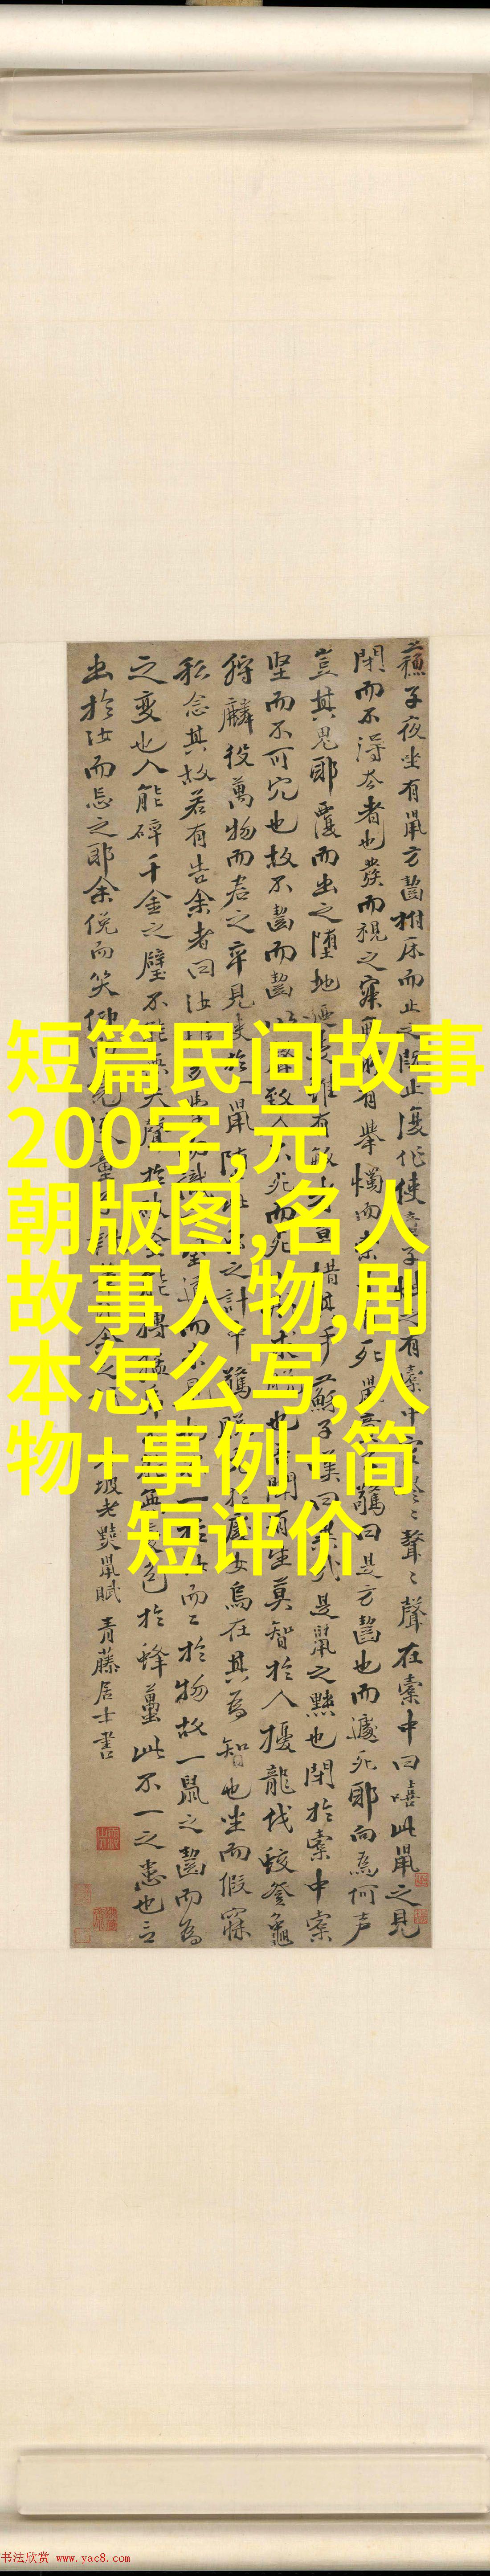 短篇民间故事
200字,元
朝版图,名人
故事人物,剧
本怎么写,人
物+事例+简
短评价
蘇子夜坐有鼠方齧拊床而止之既止復作使童子燭之有橐中空〻聲〻聲在橐中曰嘻此鼠之見
閉而不得去者也發而視之寂無所有舉燭而索死鼠驚曰是方齧也而遽死耶向為何声
豈其鬼耶覆而出之墮地迺走雖有敏者莫措其手蘇子嘆曰異哉是鼠之黠也閉於橐中橐
堅而不可穴也故不齧而齧以聲致人不死而死以形求脫也吾聞有生莫智於人擾龍伐蛟登龜
狩麟役萬物而君之卒見使於一鼠墮此之計中驚脫兔於處女烏在其為智也坐而假寐
私念其故若有告余者曰汝惟多學而識之望道而未見也不一於汝而二於物故一鼠之齧而為
之變也人能碎千金之璧不能無失聲於破釜能搏猛虎不能無變色於蜂蠆此不一之患也言
出於汝而忘之耶余俛而笑仰而覺使童子執筆記余之作
東坡老黠鼠賦 青藤居士書
书法欣赏 www.yac8.com